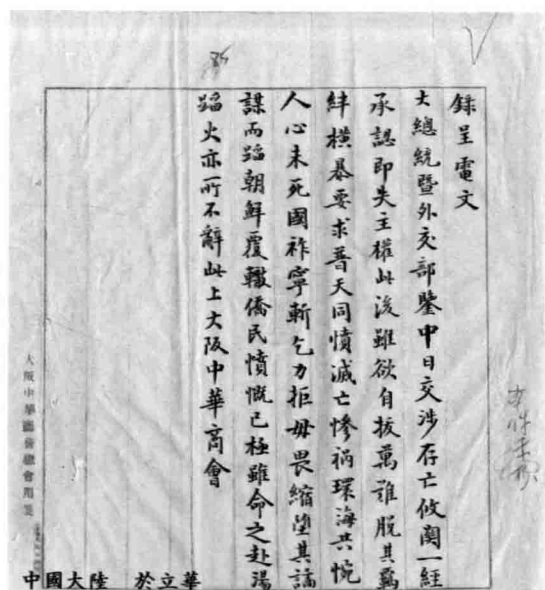 錄呈電文
大總統暨外交部鑒中日交涉存亡攸關一經
承認即失主權此後雖欲自拔萬難脫其羈
絆橫暴要求普天同憤滅亡慘禍環海共惋
人心未死國祚寧斬乞力拒毋畏縮墮其詭
謀而蹈朝鮮覆轍僑民憤慨已極雖命之赴湯
蹈火亦所不辭此上大阪中華商會
大阪中華總商會用箋
中國大陸 於立華